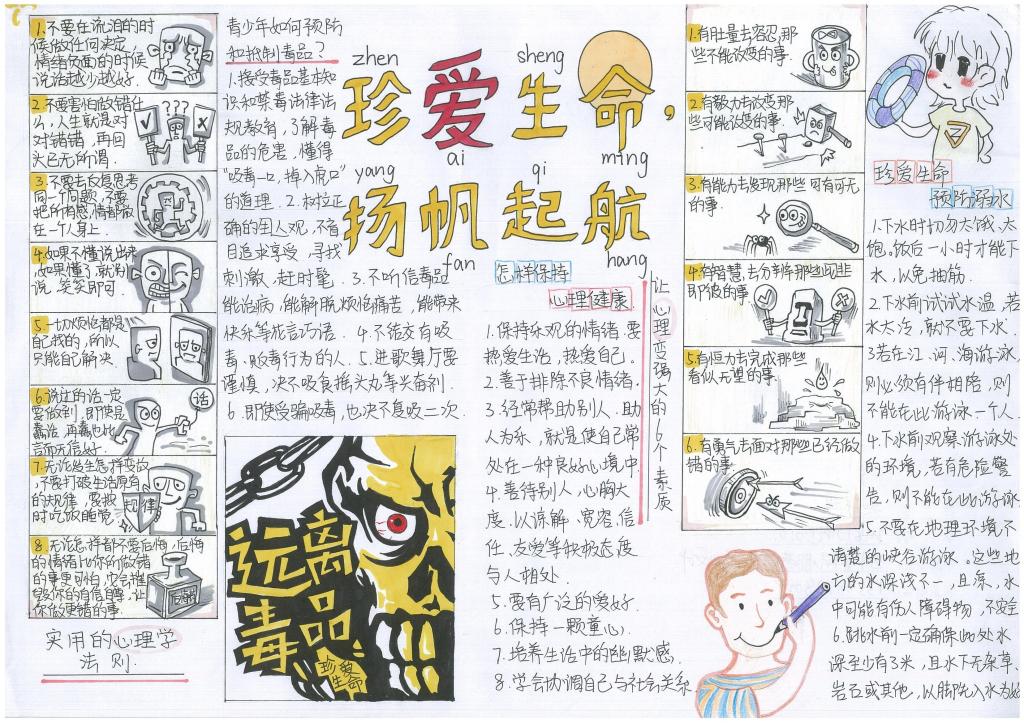 1.不要在流泪的时
候做任何决定,
情绪负面的时候
说话越少越好.
2.不要害怕做错什
么,人生就是对
对错错,再回
头已无所谓.
3.不要去反复思考
同一个问题,不要
把所有感情都放
在一个人身上.
4.如果不懂说出来
,如果懂了,就别
说,笑笑即可.
5.一切烦恼都是
自己找的,所以
只能自己解决.
6.说过的话一定
要做到,即使是
言而无信.
话
7.无论发生怎样变故
,不要打破生活原有
的规律,要按
时吃饭睡觉.
规律
8.无论怎样都不要后悔,后悔
的情绪比你所做错
的事更可怕,它会摧
毁你的自信自尊,让
你做更错的事.
后悔
实用的心理学
法则.
青少年如何预防
和抵制毒品?
1.接受毒品基本知
识和禁毒法律法
规教育,了解毒
品的危害,懂得
“吸毒一口,掉入虎口”
的道理. 2.树立正
确的国人观,不盲
目追求享受,寻找
刺激,赶时髦. 3.不听信毒品
能治病,能解脱烦恼痛苦,能带来
快乐等花言巧语. 4.不结交有吸
毒、贩毒行为的人. 5.进歌舞厅要
谨慎,决不吸食摇头丸等兴奋剂.
6.即使受骗吸毒,也决不复吸二次.
远离
毒品
珍爱
生命
zhen sheng
珍爱生命,
ai ming
yang qi
扬帆起航
fan hang
怎样保持
心理健康
1.保持乐观的情绪.要
热爱生活,热爱自己.
2.善于排除不良情绪.
3.经常帮助别人.助
人为乐,就是使自己常
处在一种良好心境中.
4.善待别人,心胸大
度.以谅解、宽容、信
任、友爱等积极态度
与人相处.
5.要有广泛的爱好.
6.保持一颗童心.
7.培养生活中的幽默感.
8.学会协调自己与社会关系.
让心理变强大的6个素质
1.有肚量去容忍那
些不能改变的事.
2.有毅力去改变那
些可能改变的事.
3.有能力去发现那些可有可无
的事.
4.有智慧,去分辨那些似非
即彼的事.
5.有恒力去完成那些
看似无望的事.
6.有勇气去面对那些已经做
错的事.
珍爱生命
预防溺水
1.下水时切勿太饿、太
饱.饭后一小时才能下
水,以免抽筋.
2.下水前试试水温,若
水太冷,就不要下水.
3.若在江、河、海游泳,
则必须有伴相陪,则
不能在此游泳一个人.
4.下水前观察游泳处
的环境,若有危险警
告,则不能在此游泳
5.不要在地理环境不
清楚的峡谷游泳。这些地
方的水深浅不一,且凉,水
中可能有伤人障碍物,不安全
6.跳水前一定确保此处水
深至少有3米,且水下无杂草、
岩石或其他,以脚先入水为